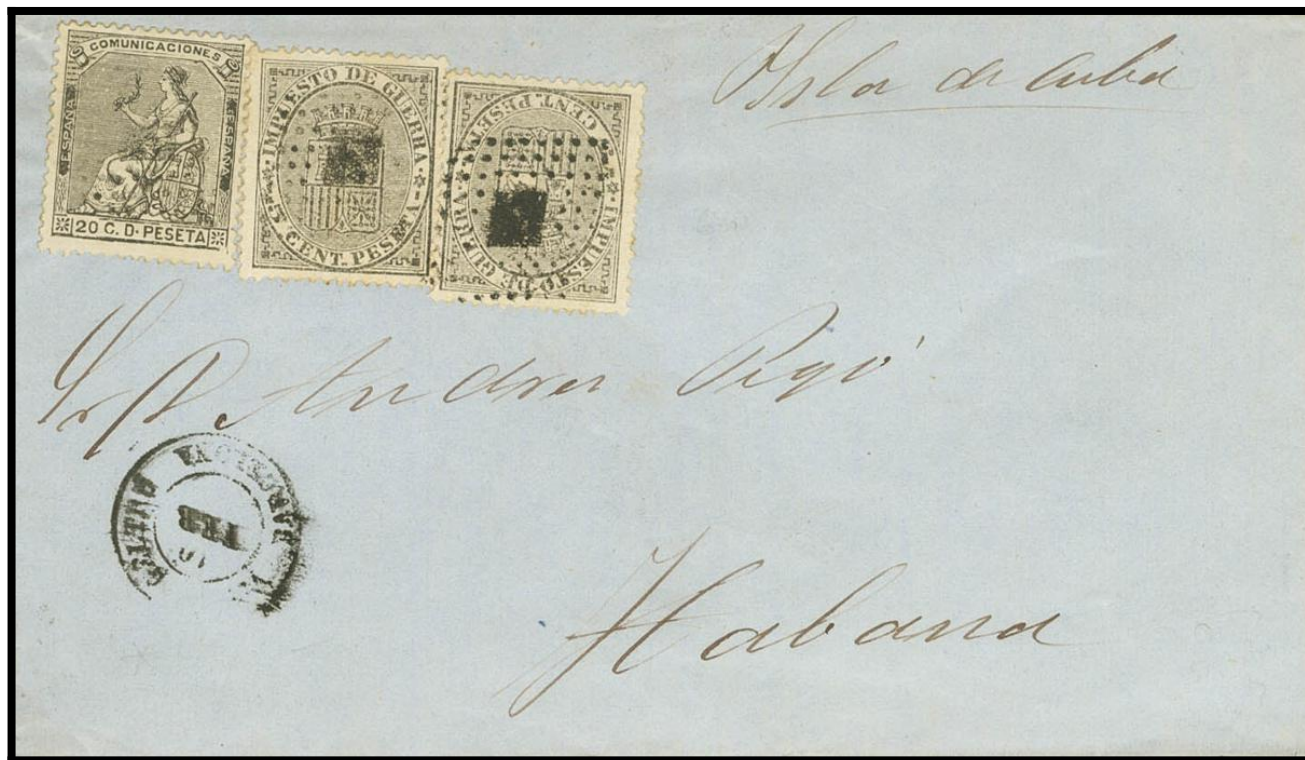 COMUNICACIONES
ESPAÑA
ESPAÑA
20 C. D. PESETA
IMPUESTO DE GUERRA
5 CENT. PESETA
IMPUESTO DE GUERRA
5 CENT. PESETA
Ysla de Cuba
Sr D. Andres
Habana
FEB